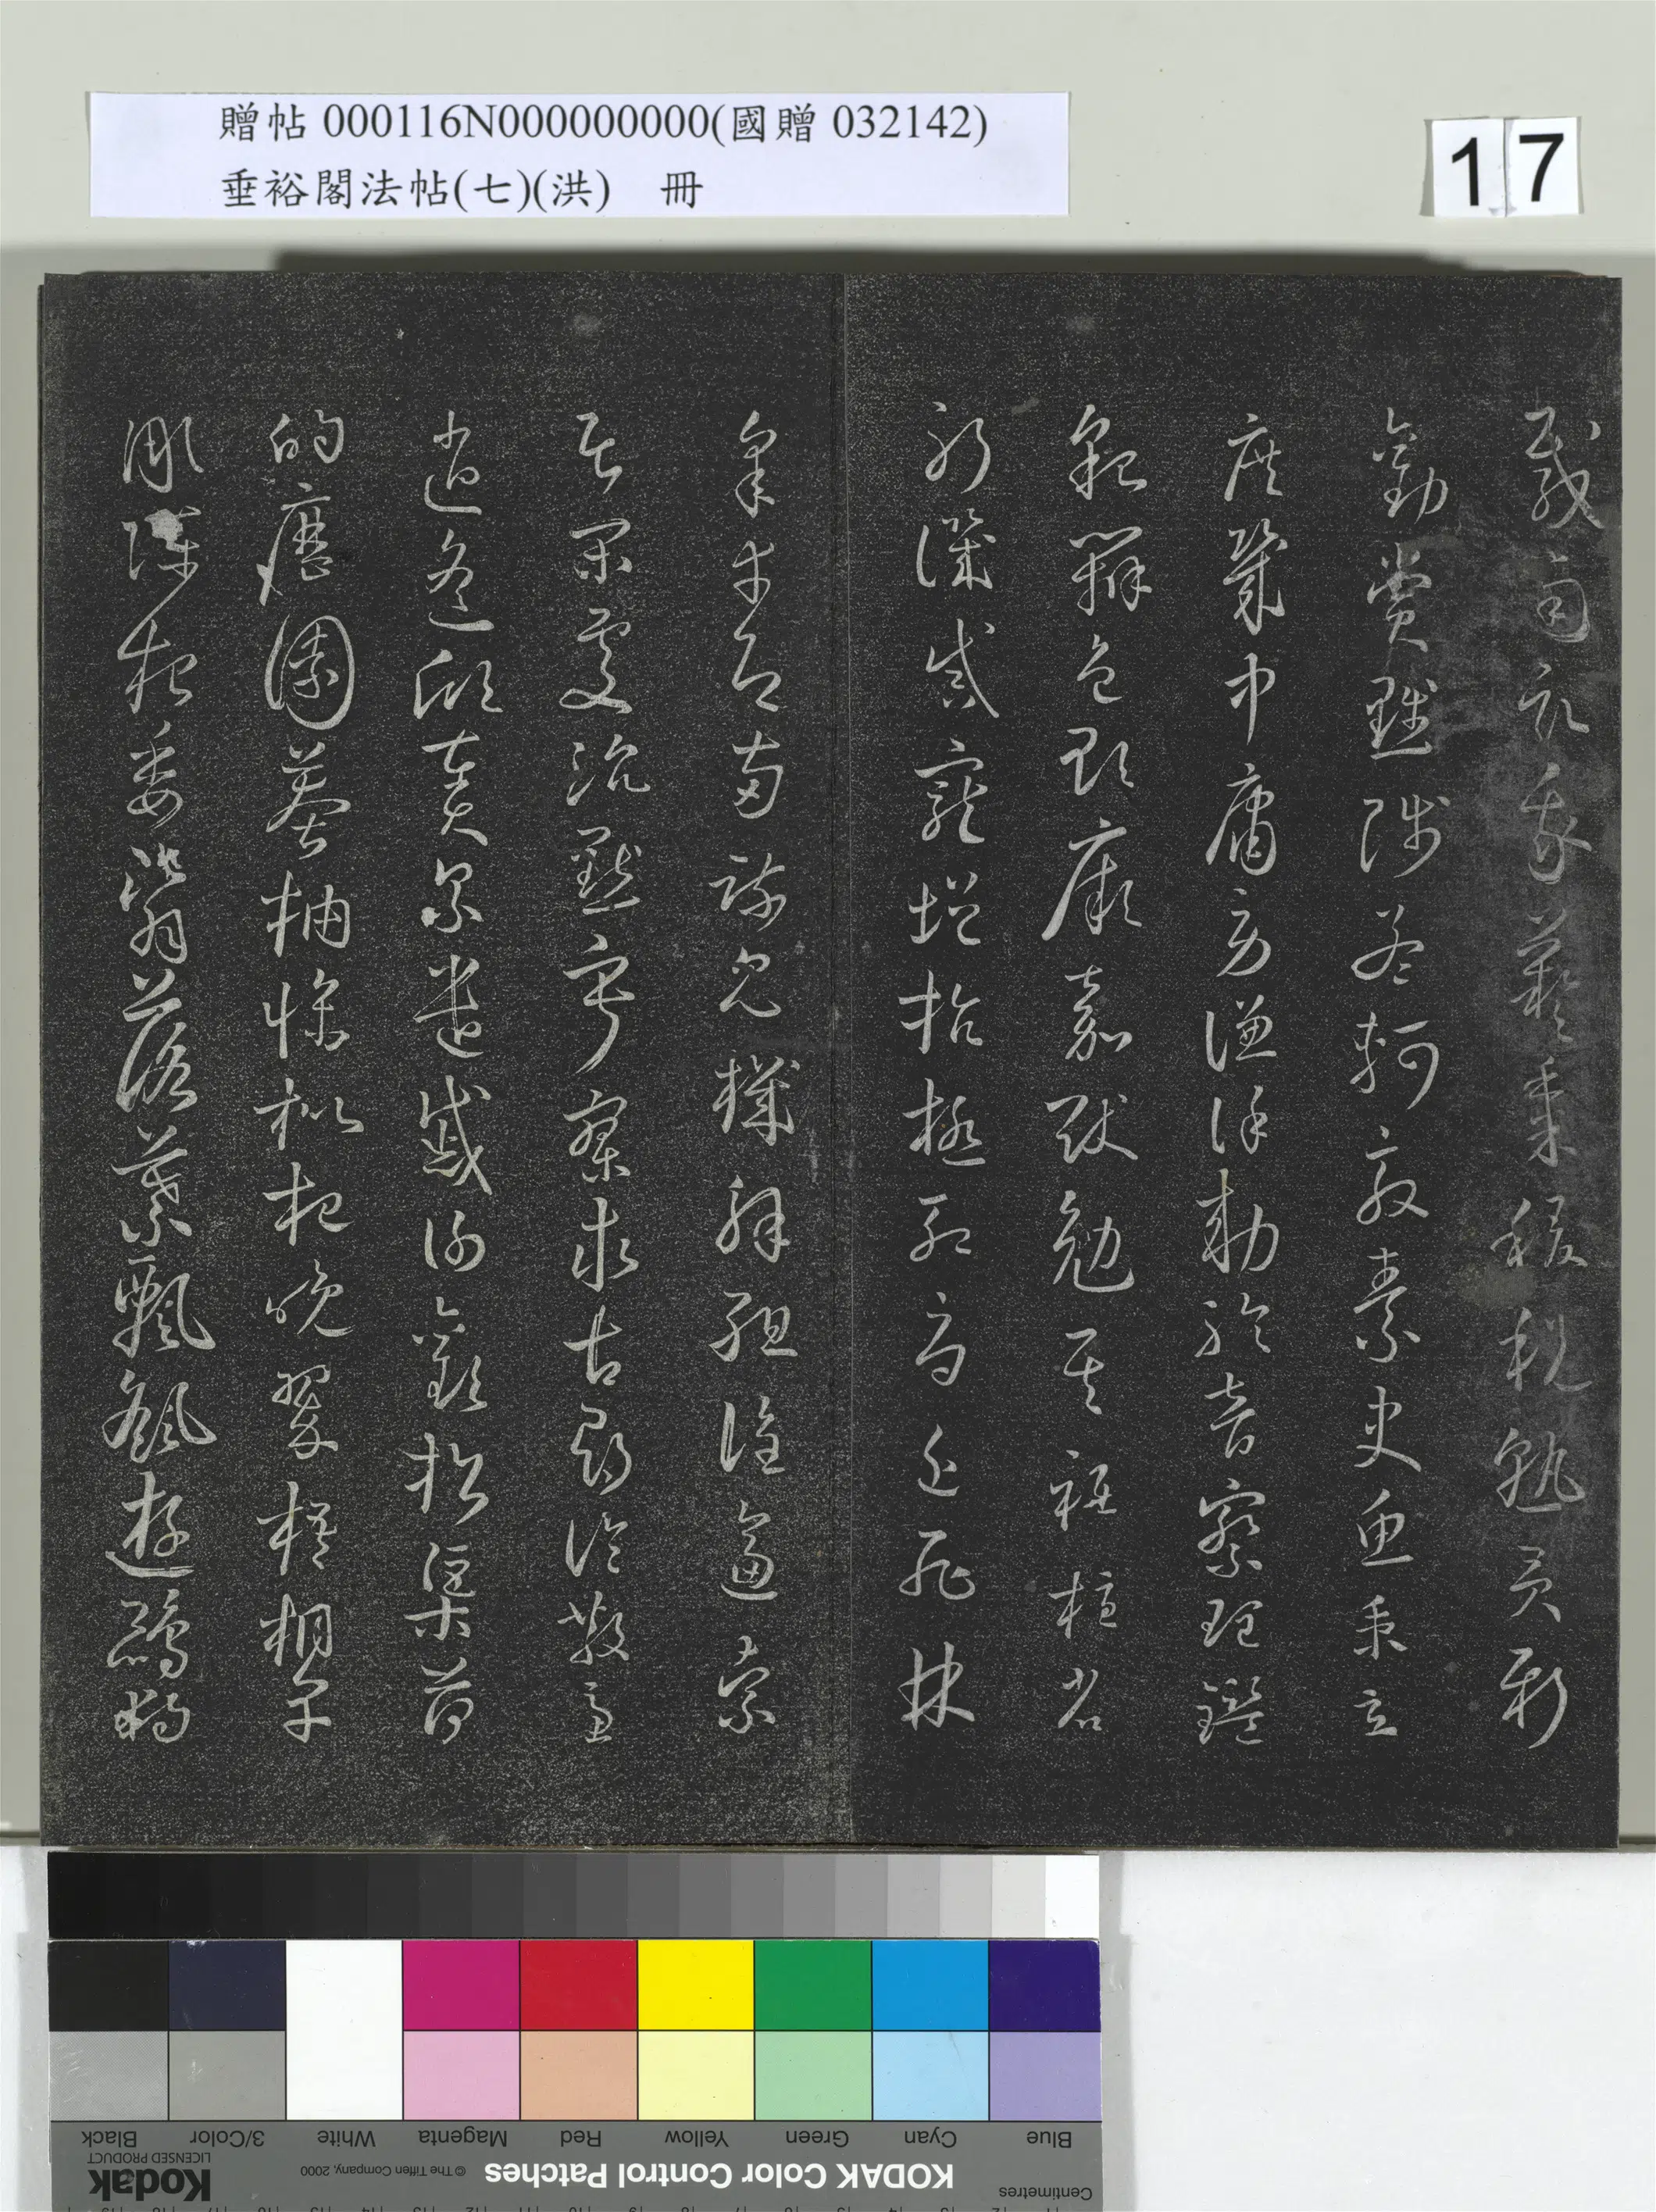 贈帖 000116N000000000(國贈 032142)
垂裕閣法帖(七)(洪) 冊
17
載南畝我藝黍稷稅熟貢新
勸賞黜陟孟軻敦素史魚秉直
庶幾中庸勞謙謹勅聆音察理鑑
貌辨色貽厥嘉猷勉其祗植省
躬譏誡寵增抗極殆辱近恥林
皋幸即兩疏見機解組誰逼索
居閑處沉默寂寥求古尋論散慮
逍遙欣奏累遣慼謝歡招渠荷
的歷園莽抽條枇杷晚翠梧桐早
彫陳根委翳落葉飄颻遊鵾獨
Blue Cyan Green Yellow Red Magenta White 3/Color Black
Centimetres KODAK Color Control Patches © The Tiffen Company, 2000 Kodak LICENSED PRODUCT